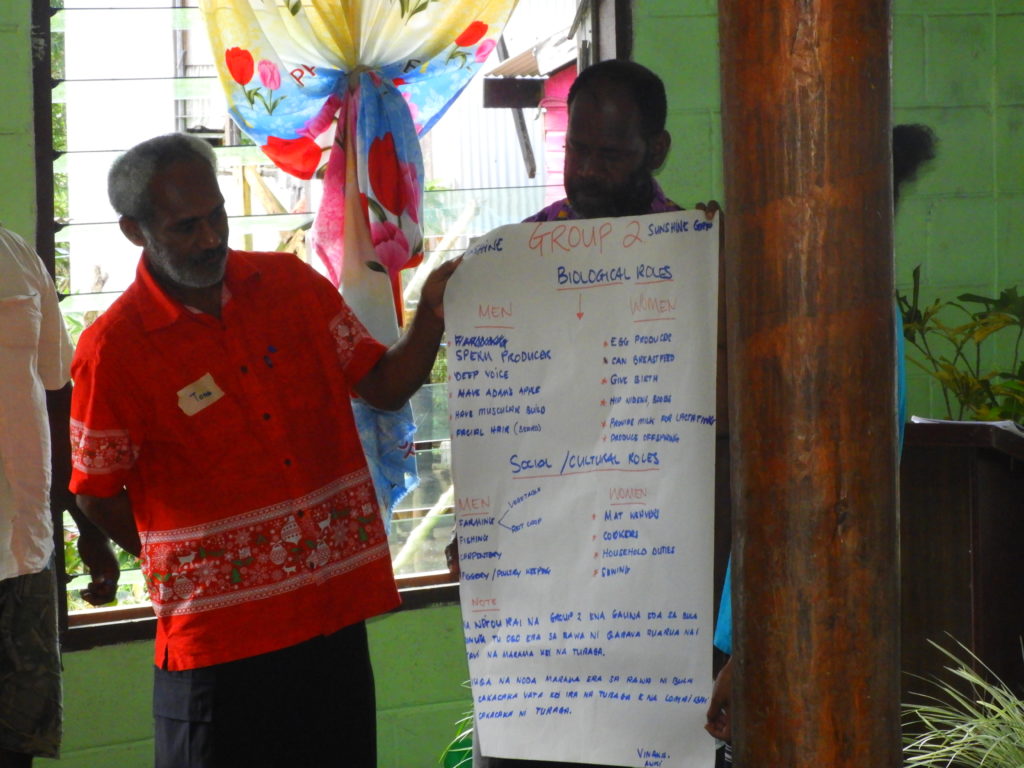 GROUP 2
SUNSHINE
BIOLOGICAL ROLES
MEN
SPERM PRODUCER
DEEP VOICE
HAVE ADAM'S APPLE
HAVE MUSCULAR BUILD
FACIAL HAIR (BEARD)
WOMEN
* EGG PRODUCER
* CAN BREASTFEED
* GIVE BIRTH
* HIP WIDENS, BOOBS
* PROVIDE MILK FOR LACTATING
* PRODUCE OFFSPRING
SOCIAL / CULTURAL ROLES
MEN
FARMING
VEGETABLE
ROOT CROP
FISHING
CARPENTRY
PIGGERY / POULTRY KEEPING
WOMEN
* MAT WEAVERS
* COOKERS
* HOUSEHOLD DUTIES
* SEWING
NOTE
NA NETOU RAI NA GROUP 2 ENA GAUNA EDA SA BULA
TU OQO ERA SA RAWA NI QARAVA RUARUA NAI
NA MARAMA KEI NA TURAGA.
NA NODA MARAMA ERA SA RAWA NI BULA
CAKACAKA VATA KEI IRA NA TURAGA E NA
CAKACAKA NI TURAGA.
VINAKA.